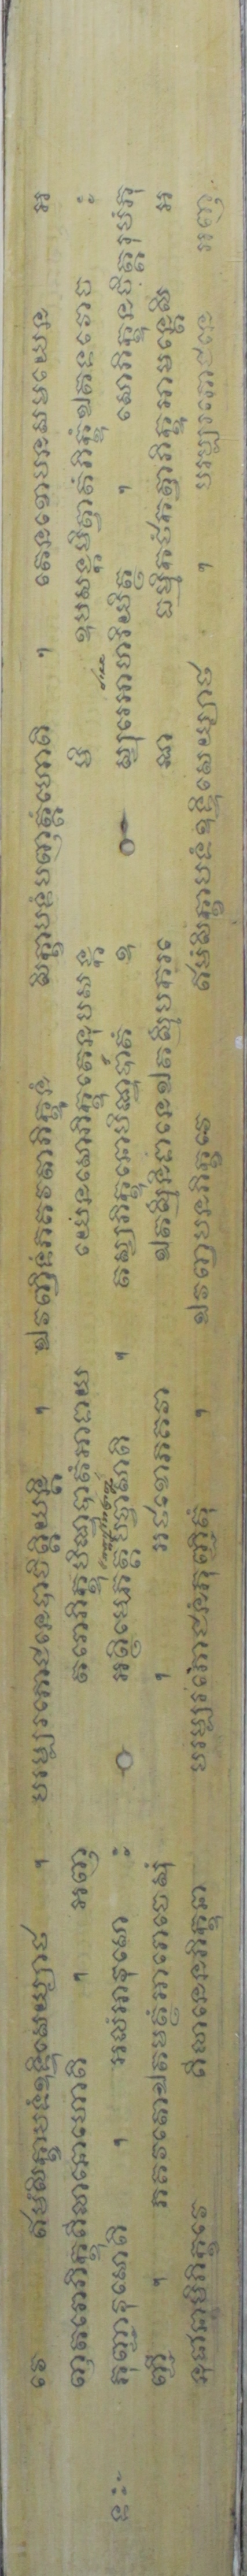 វេ ឥមំសិក្ខាបទំឧទ្ទិសេយ្យាថ ។ បរម្បរភោជនេបាចិត្តិយន្តិ ។ ឯវញ្ចិទំភគវតាភិក្ខុនំ សិក្ខាបទំបញត្តំហោតិ ។ តេនខោបនសមយេន អ
ញតរោភិក្ខុគិលានោហោតិ ។ អញ តរោភិក្ខុបិណ្ឌបាតំអាទាយ យេនសោភិក្ខុតេនុបសង្ក មិ ឧបសង្កមិត្វាតំភិក្ខុំឯតទវោច ៈ
នៈ ភុញ្ជាវុសោតិ ។ អលំអាវុសោ ៈ អត្ថិមេភត្តបច្ចាសាតិ ។ តស្សភិក្ខុនោបិណ្ឌបាតំ ឧ ស្សុរេអាហរិយិត្ថ ។ សោភិក្ខុនចិត្តរុបំភុ
ញ្ជិ ។ ភគវតោឯតមត្ថំអារោចេសុំ ។ អថខោភគវា ឯតស្មិំនិទានេឯតស្មិំបករ ណេ ធម្មិកថំកត្វាភិក្ខុអាមន្តេសិ អ
នុជានាមិភិក្ខវេ គិលានេនភិក្ខុនា បរម្បរភោជនំភុញ្ជិតុំ ។ ឯវញ្ចបនភិក្ខវេ ឥមំសិក្ខាបទំឧទ្ទិសេយ្យាថ ។ បរម្បរភោជនេ អញ